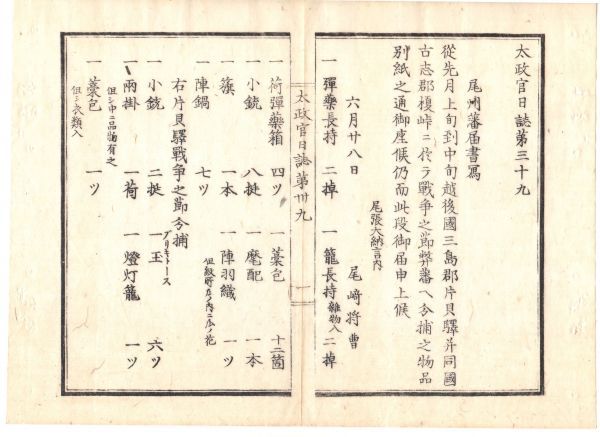 太政官日誌第三十九
尾州藩届書寫
從先月上旬到中旬越後國三島郡片貝驛幷同國
古志郡榎峠ニ於テ戰争之節弊藩ヘ分捕之物品
別紙之通御座候仍而此段御届申上候
尾張大納言内
六月廿八日 尾﨑將曹
一 彈藥長持 二掉 一 籠長持 雜物入 二掉
太政官日誌第卅九 一
一 荷彈藥箱 四ツ 一 藁包 十二箇
一 小銃 八挺 一 麾配 一本
一 籏 一本 一 陣羽織 一ツ
一 陣鍋 七ツ 但紋所
右片貝驛戰争之節分捕
一 小銃 二挺 一 玉 六ツ
一 兩掛 一荷 一 燈灯籠 一ツ
但シ中ニ品物有之
一 藁包 一ツ
但シ衣類入